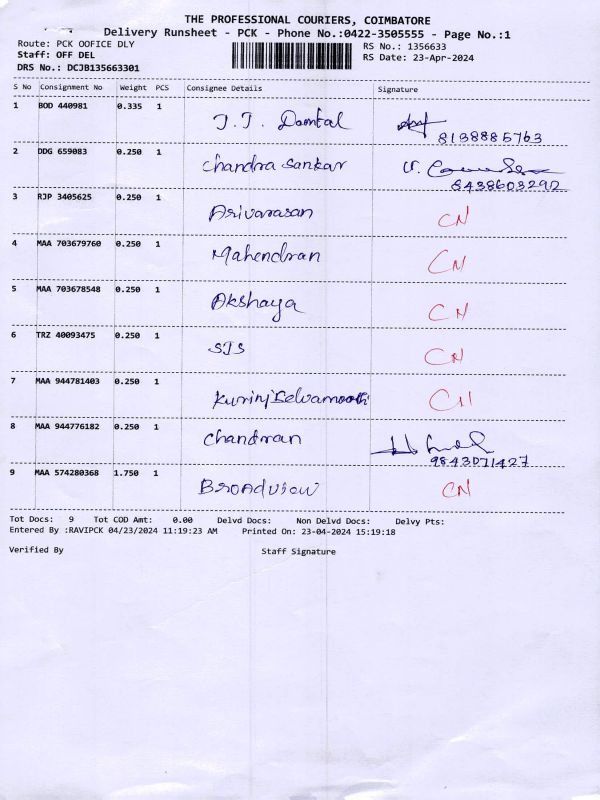 THE PROFESSIONAL COURIERS, COIMBATORE
Delivery Runsheet - PCK - Phone No.:0422-3505555 - Page No.:1
Route: PCK OOFICE DLY
RS No.: 1356633
Staff: OFF DEL
RS Date: 23-Apr-2024
DRS No.: DCJB135663301
S No Consignment No Weight PCS Consignee Details Signature
1 BOD 440981 0.335 1 J.J. Dantal
8138885763
2 DDG 659083 0.250 1 Chandra Sankar
8438603292
3 RJP 3405625 0.250 1 Arivarasan CN
4 MAA 703679760 0.250 1 Mahendran CN
5 MAA 703678548 0.250 1 Akshaya CN
6 TRZ 40093475 0.250 1 SJS CN
7 MAA 944781403 0.250 1 CN
8 MAA 944776182 0.250 1 Chandran
9843071427
9 MAA 574280368 1.750 1 Broadview CN
Tot Docs: 9 Tot COD Amt: 0.00 Delvd Docs: Non Delvd Docs: Delvy Pts:
Entered By :RAVIPCK 04/23/2024 11:19:23 AM Printed On: 23-04-2024 15:19:18
Verified By Staff Signature